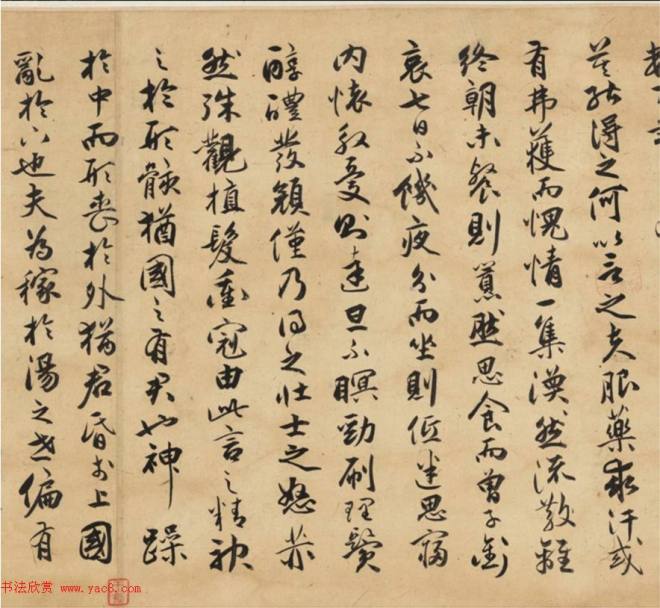 莫能得之何以言之夫服藥求汗或
有弗獲而愧情一集渙然流散離
終朝未餐則囂然思食而曾子銜
哀七日不飢夜分而坐則低迷思寢
內懷殷憂則達旦不瞑勁刷理鬢
醇醴發顏僅乃得之壯士之怒赫
然殊觀植髮衝冠由此言之精神
之於形骸猶國之有君也神躁
於中而形喪於外猶君昏於上國
亂於下也夫為稼於湯之世偏有
书法欣赏 www.yac8.com